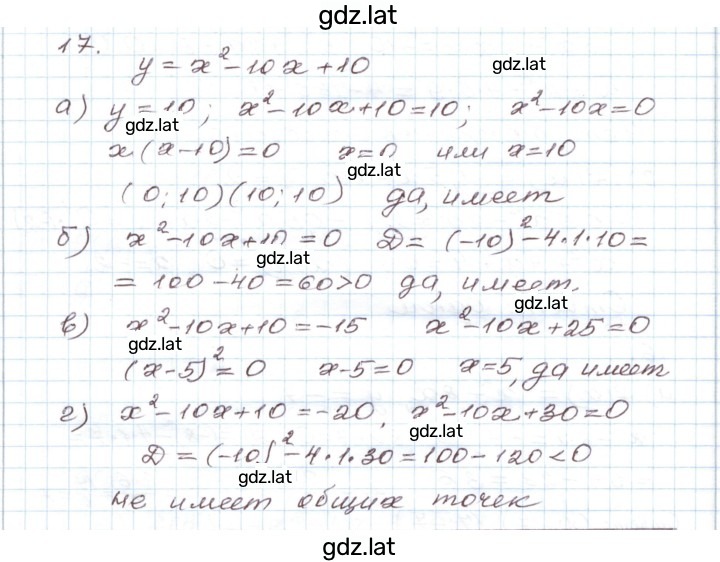 gdz.lat
17.
y = x² - 10x + 10
gdz.lat
а) y = 10; x² - 10x + 10 = 10; x² - 10x = 0
gdz.lat
x(x-10) = 0 x = 0 или x = 10
gdz.lat
(0; 10) (10; 10) да, имеет
б) x² - 10x + 10 = 0 D = (-10)² - 4·1·10 =
gdz.lat
= 100 - 40 = 60 > 0 да, имеет.
gdz.lat
в) x² - 10x + 10 = -15 x² - 10x + 25 = 0
gdz.lat
(x-5)² = 0 x - 5 = 0 x = 5, да имеет
г) x² - 10x + 10 = -20, x² - 10x + 30 = 0
gdz.lat
D = (-10)² - 4·1·30 = 100 - 120 < 0
gdz.lat
не имеет общих точек
gdz.lat